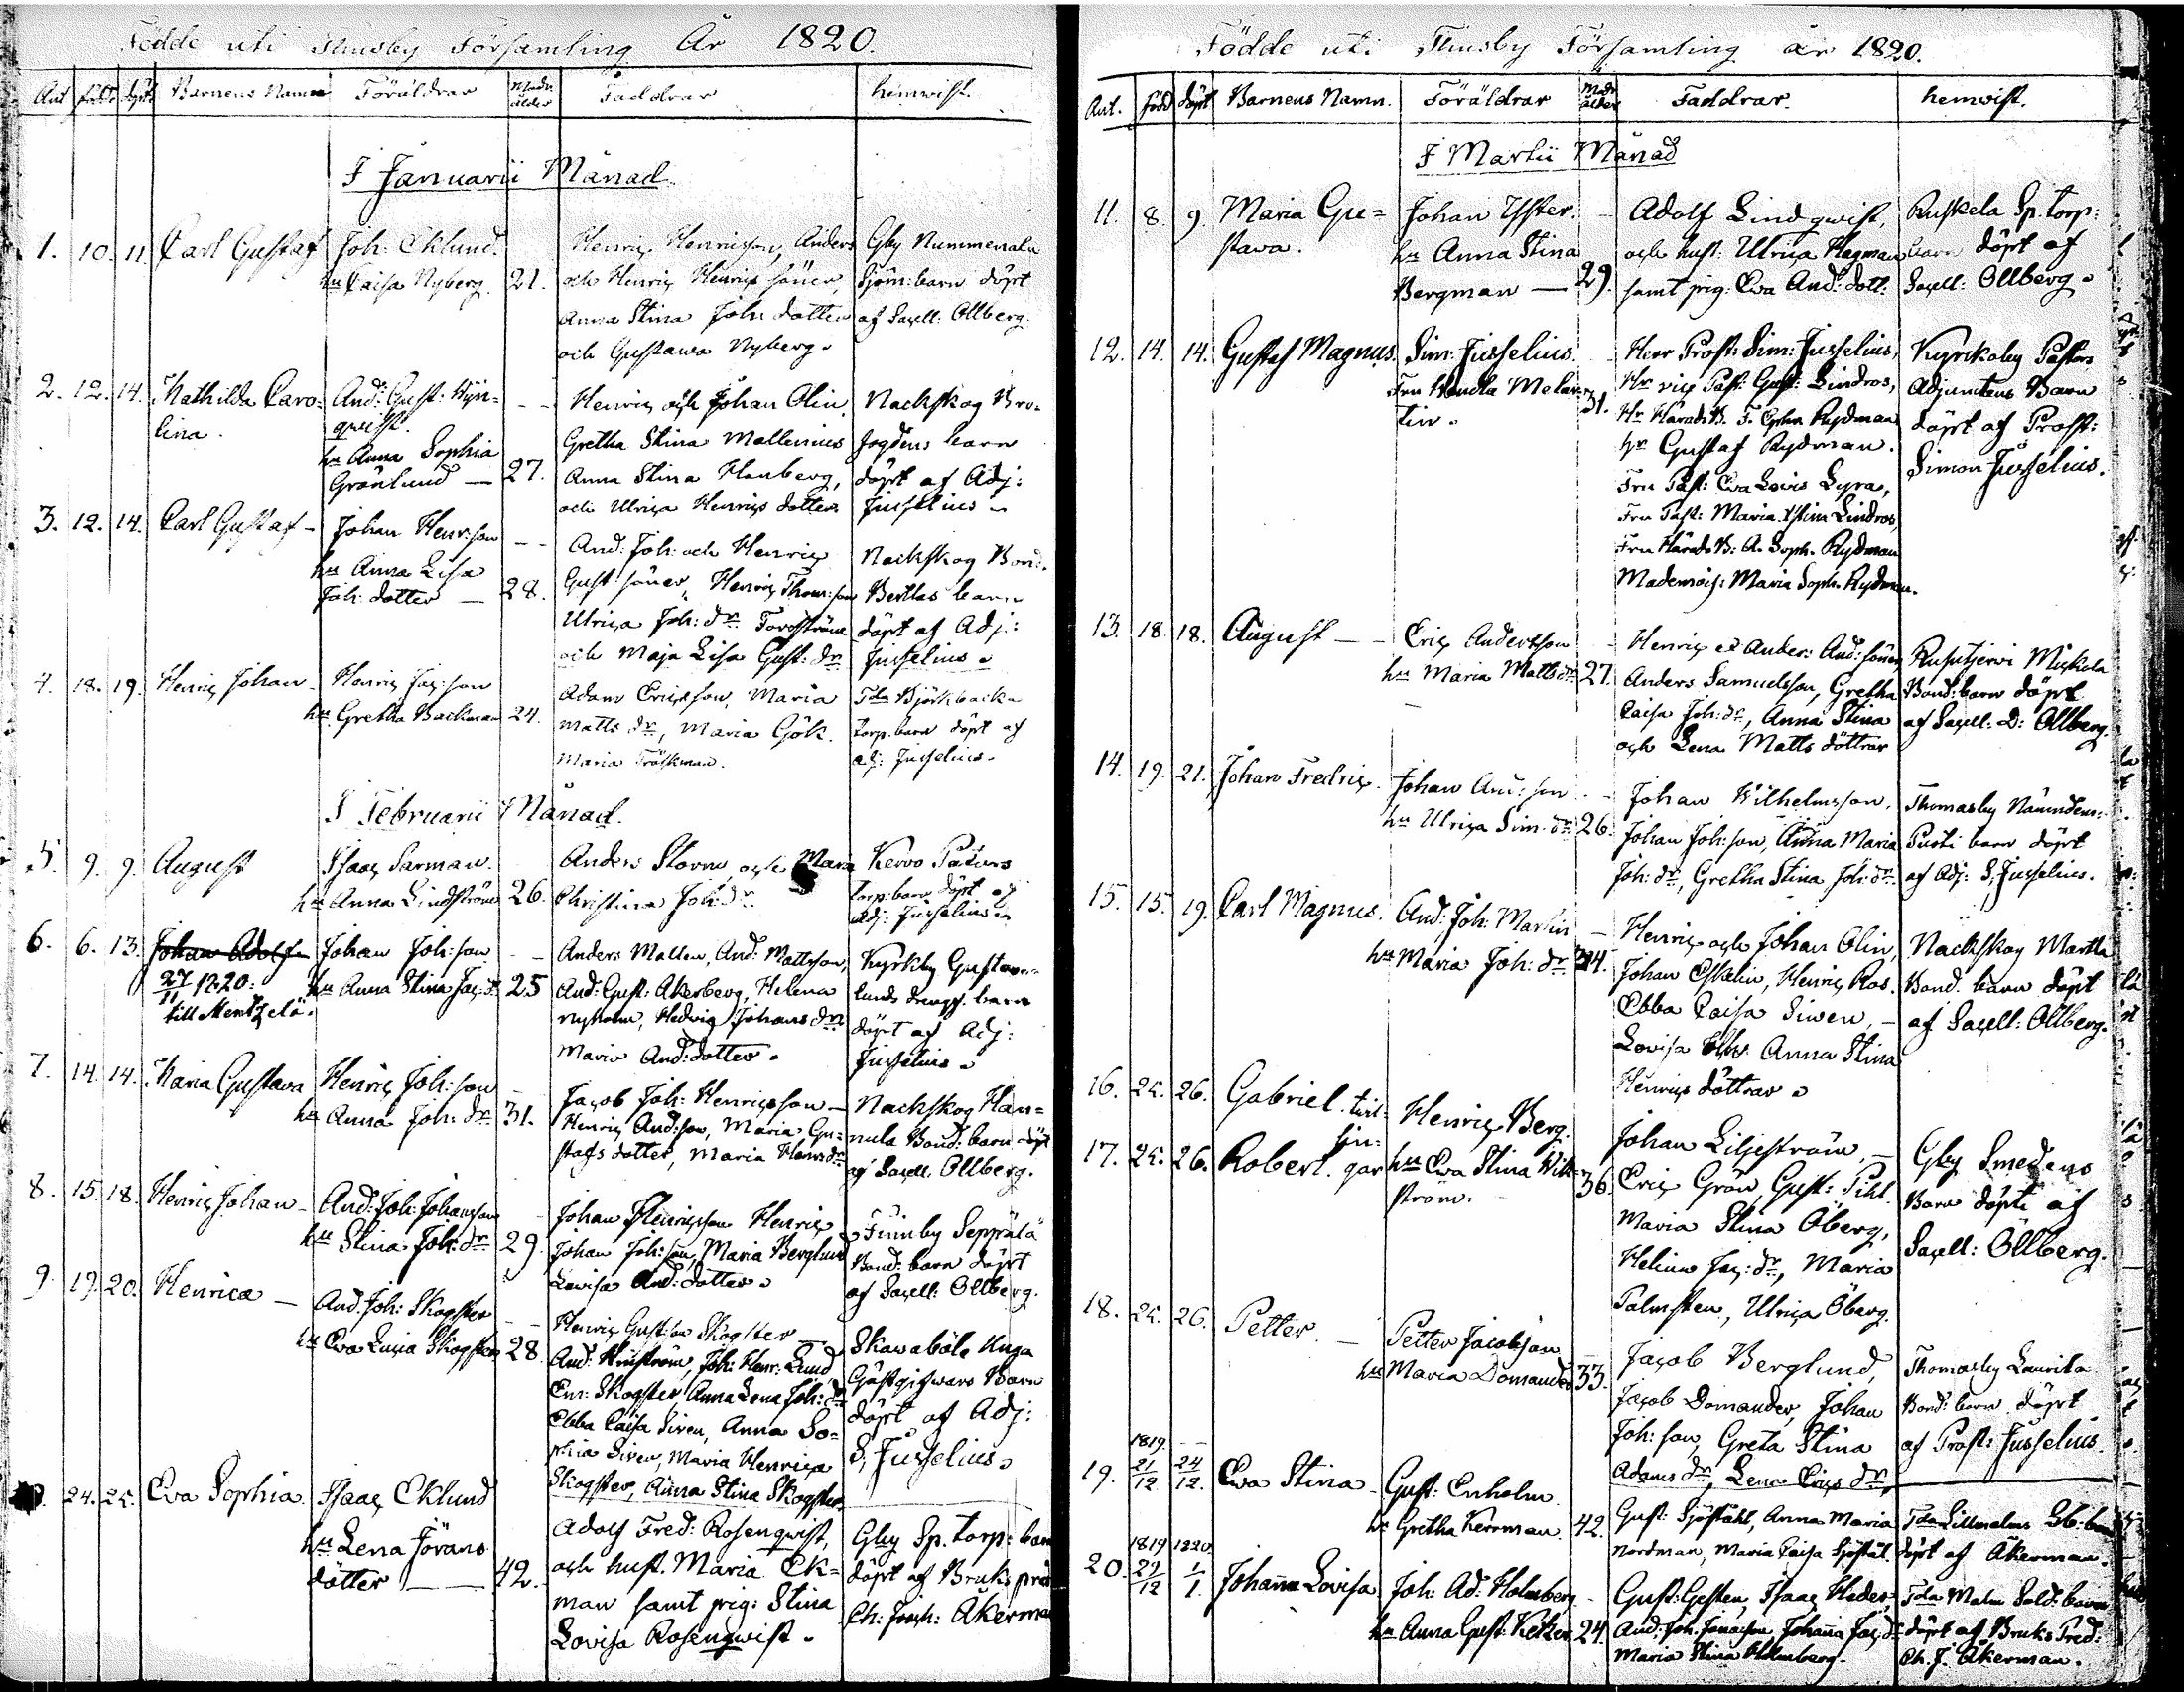 Födde uti Församling År 1820.
Ant född döpt Barnens Namn Föräldrar Modr. ålder Faddrar hemwist.
I Januarii Månad
1. 10. 11. Carl Gustaf Joh: Eklund. Henric Henricsson, Anders Gby Nummenala
hu Caisa Nyberg. 21. och Henric Henrics söner, barn döpt
Anna Stina Joh: dotter af Sacell: Ollberg.
och Gustawa Nyberg.
2. 12. 14. Mathilda Caro= And: Gust: -- Henric och Johan Olin Nackskog
lina. Gretha Stina Mallenius fogdens barn
hu Anna Sophia
Grönlund — 27. Anna Stina döpt af Adj:
och Ulrica Henrics dotter Jusselius
3. 12. 14. Carl Gustaf - Johan Henr:son -- And: Joh: och Henric Nackskog Bond:
hu Anna Lisa Gust: söner, Henric Thom:son Berttas barn
Joh: dotter — 28. Ulrica Joh: dr döpt af Adj:
och Maja Lisa Gust: dr Jusselius
4. 18. 19. Henric Johan - Henric Jac:son Adam Ericsson, Maria Björkbacka
hu Gretha Backman 24. Matts dr, Maria Gök. torp. barn döpt af
Maria Träskman. adj: Jusselius.
I Februarii Månad.
5. 9. 9. August Isaac Sarman. Anders och Maria Kervo
hu Anna Lindström 26. Christina Joh: dr. torp: barn döpt af
adj: Jusselius
6. 6. 13. Johan Adolf Johan Joh:son - Anders Mallen, And: Mattsson, Kyrkby
27/11 1820: hu Anna Stina Jac: d. 25 And: Gust: Åkerberg, Helena barn
till Mentzelä. Nyholm, Hedwig Johans dr döpt af Adj:
Maria And: dotter. Jusselius
7. 14. 14. Maria Gustava Henric Joh:son - Jacob Joh: Henricsson — Nackskog Han=
hu Anna Joh: dr 31. Henric And:son, Maria Gu= nula Bond: barn döpt
stafs dotter, Maria Henrs dr af Sacell. Ollberg.
8. 15. 18. Henric Johan - And: Joh: Johansson - Johan Henricsson Henric Finnby Seppälä
hu Stina Joh: dr 29. Johan Joh:son, Maria Berglund Bond: barn döpt
Lovisa And: dotter. af Sacell: Ollberg.
9. 19. 20. Henrica — And. Joh: Skogster -- Henric Gust:son Skogster — Skawaböle Uuga
hu Eva Lucia Skogster 28. And: Joh: Henr: Lund Gästgifwars Barn
Skogster, Anna Lena Joh: dr döpt af Adj:
Ebba Caisa Siren, Anna So= S, Jusselius
phia Siren, Maria Henrica
Skogster, Anna Stina Skogster.
24. 25. Eva Sophia. Isaac Eklund Adolf Fred: Rosenqwist, Gby Sp. torp: barn
hu Lena Jörans och hust. Maria Ek= döpt af Bruks
dotter — 42. man samt pig: Stina Ch: Åkerman
Lovisa Rosenqwist.
Födde uti Församling år 1820.
Ant. född döpt Barnens Namn. Föräldrar Modr. ålder Faddrar. hemwist.
I Martii Månad
11. 8. 9. Maria Gu= Johan - Adolf Lindqwist, Ruskela Sp. torp:
stava. hu Anna Stina och hust: Ulrica Hagman barn döpt af
Bergman — 29. samt pig: Eva And: dott: Sacell: Ollberg.
12. 14. 14. Gustaf Magnus. Sim: Jusselius. - Herr Prost: Sim: Jusselius, Kyrckoby Pastors
Fru Hendla Melar= 31. Hr vice Past: Gust: Lindros, Adjuntens Barn
tin. Hr Härads B. F. Ephr. Rydman döpt af Prost:
hr Gustaf Rydman. Simon Jusselius.
Fru Past: Eva Lovis Lyra,
Fru Past: Maria Lindros,
Fru Härads B: A. Soph. Rydman
Mademois: Maria Soph. Rydman.
13. 18. 18. August — Eric Andersson - Henric et Ander: And: söner Rusutjervi Mickola
hu Maria Matts dr 27. Anders Samuelsson, Gretha Bond: barn döpt
Caisa Joh: dr, Anna Stina af Sacell: D: Ollberg.
och Lena Matts döttrar
14. 19. 21. Johan Fredric. Johan And:son - Johan Wilhelmsson, Thomasby
hu Ulrica Sim: dr 26. Johan Joh:son, Anna Maria barn döpt
Joh: dr, Gretha Stina Joh: dr af Adj: S, Jusselius.
15. 15. 19. Carl Magnus. And: Joh: Martin — Henric och Johan Olin, Nackskog Martla
hu Maria Joh: dr 34. Johan Henric Ros. Bond. barn döpt
Ebba Caisa Siwen, — af Sacell: Ollberg.
Lovisa Anna Stina
Henrics döttrar
16. 25. 26. Gabriel. twil= Henric Berg. Johan Liljeström, — Gby Smedens
17. 25. 26. Robert. lin: gar hu Eva Stina Wik= 36. Eric Grön, Gust: Pihl. Barn döpte af
ström. Maria Stina Öberg, Sacell: Öllberg.
Helina Jac: dr, Maria
Palmsten, Ulrica Öberg.
18. 25. 26. Petter. — Petter Jacobsson — Jacob Berglund, Thomasby Laurila
hu Maria Domander 33. Jacob Domander, Johan Bond: barn döpt
Joh: son, Greta Stina af Prost: Jusselius.
Adams dr, Lena Erics dr,
1819.
19. 21/12 24/12. Eva Stina - Gust: Enholm Gust: Sjöståhl, Anna Maria Tda Lillmalms
hu Gretha Kerrman. 42. Nordman, Maria Caisa Sjöstål. döpt af Åkerman.
1819 1820.
20. 29/12 1/1. Johanna Lovisa Joh: Ad: Holmberg - Gust: Gesten, Isaac Heder, Tda Malm Sold: barn
hu Anna Gust: Ketzer 24. And: Joh. Johanna Jac: dr döpt af Bruks Pred:
Maria Stina Holmberg. Ch. J. Åkerman.